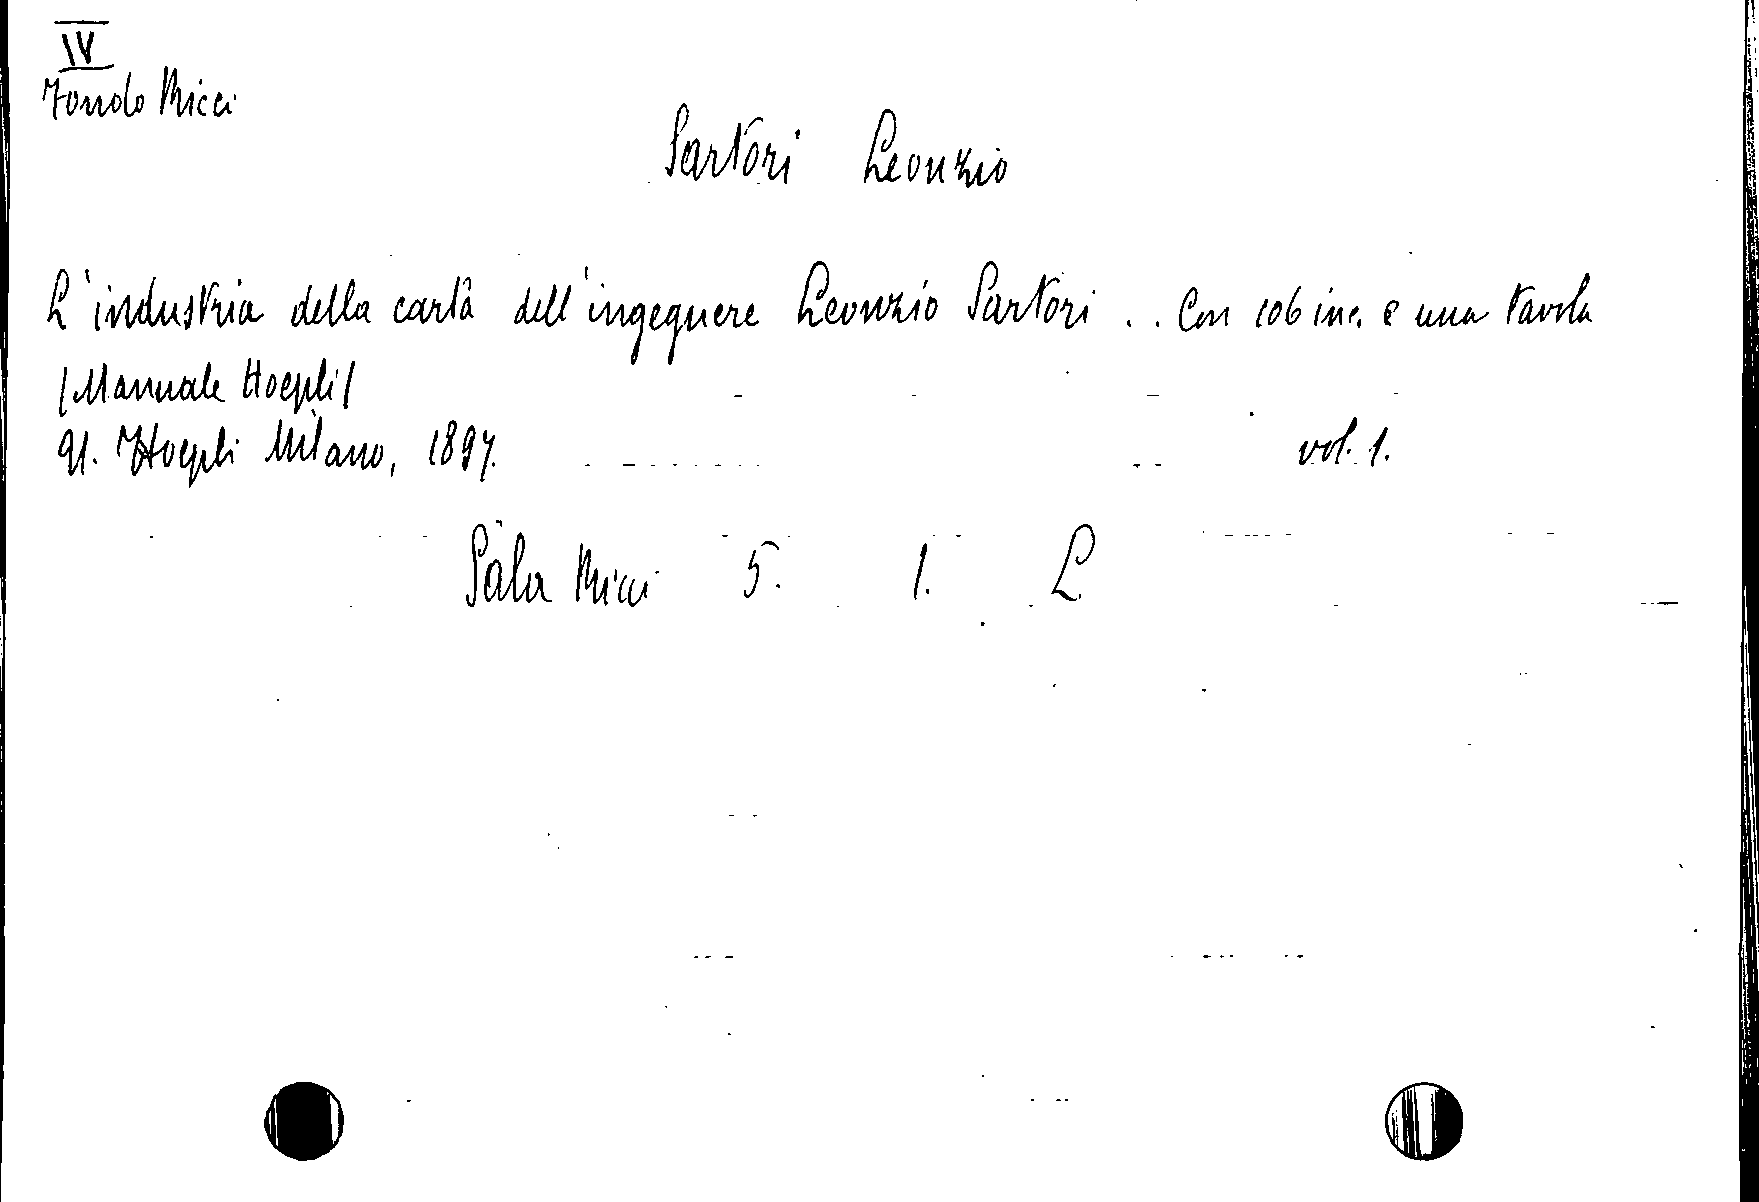 IV
Fondo Ricci
Sartori Leonzio
L'industria della carta dell'ingegnere Leonzio Sartori .. Con 106 inc. e una tavola
(Manuale Hoepli)
U. Hoepli Milano, 1897. vol. 1.
Sala Ricci 5. 1. L